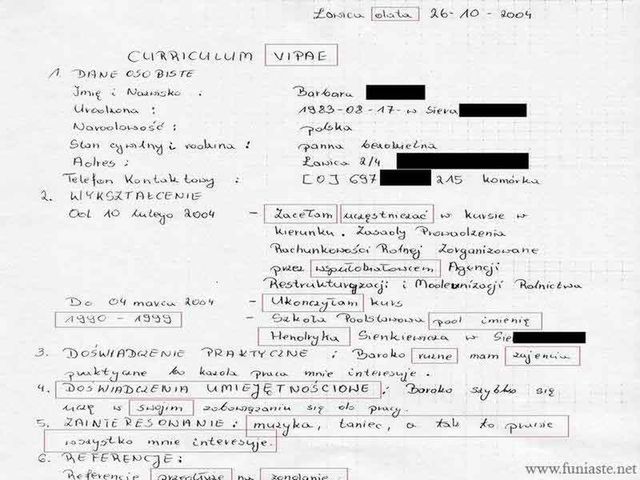 Łowica data 26-10-2004
CURRICULUM VIPAE
1. DANE OSOBISTE
Imię i Nazwisko : Barbara
Urodzona : 1983-08-17- w Siera
Narodowość : polska
Stan cywilny i rodzina : panna bezdzietna
Adres : Łowica 2/4
Telefon Kontaktowy : [0] 697 215 komórka
2. WYKSZTAŁCENIE
Od 10 lutego 2004 - Zacełam uczęstniczać w kursie w
kierunku. Zasady Prowadzenia
Rachunkowości Rolnej Zorganizowane
przez współobiatowcem Agencji
Restrukturyzacji i Modernizacji Rolnictwa
Do 04 marca 2004 - Ukończyłam kurs
1990 - 1999 - Szkoła Podstawowa pod imienię
Hendryka Sienkiewicza w Sie
3. DOŚWIADCZENIE PRAKTYCZNE : Bardzo rużne mam zajencia
praktyczne bo każda praca mnie interesuje.
4. DOŚWIADCZENIA UMIEJĘTNOŚCIOWE : Bardzo szybko się
uczę w swojim zobowązaniu się do pracy.
5. ZAINTERESOWANIE : muzyka, taniec, a tak to prawie
wszystko mnie interesuje.
6. REFERENCJE:
Referencje na żondanie.
www.funiaste.net